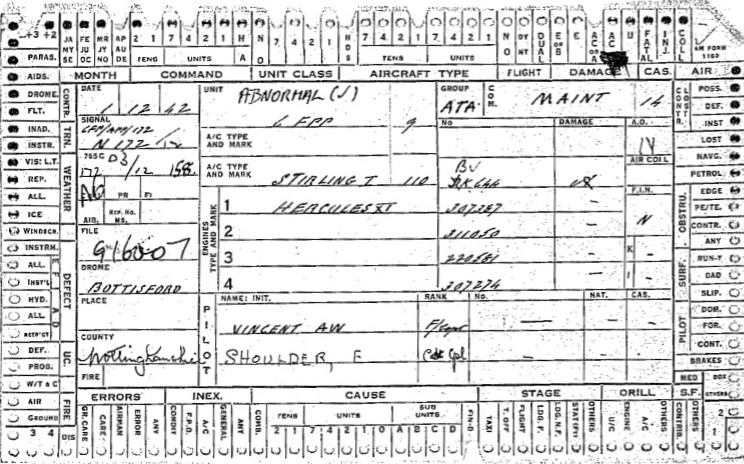 +3 +2 JA MY SE FE JU OC MR JY NO AP AU DE 2 1 7 4 2 1 H A N O 7 4 2 1 H D S 7 4 2 1 7 4 2 1 N O DY NT DUAL E OR B E AC OR A AC U FATAL INJ. COLL AM FORM 1180
PARAS. TENS UNITS TENS UNITS
AIDS. MONTH COMMAND UNIT CLASS AIRCRAFT TYPE FLIGHT DAMAGE CAS. AIR POSS.
DROME. CONTR. DATE UNIT ABNORMAL (J) GROUP COM. MAINT 14 CONTR. LOST DEF.
FLT. 1 12 42 ATA INST
INAD. TRN. SIGNAL 9 NO DAMAGE A.O. LOST
INSTR. N 172/12 A/C TYPE AND MARK NAVG.
VIS: L.T. WEATHER 765 C 03 AIR COLL PETROL
REP. 172 /12 A/C TYPE AND MARK STIRLING I 110 BV
ALL. PR FI F.I.N. OBSTRU. EDGE
ICE AIB. REP. No. MS. ENGINES TYPE AND MARK 1 HERCULES XI 307287 N PE/TE.
WINDSCR. FILE 2 311050 - CONTR.
INSTRM. DEFECT 3 220581 - K ANY
ALL. DROME SURF. RUN-Y
INST'L BOTTISFORD 4 307274 - I BAD
HYD. PLACE PILOT NAME: INIT. RANK No. NAT. CAS. SLIP.
ALL PILOT DOM.
COUNTY VINCENT AW - - - FOR.
DEF. UC. Nottinghamshire SHOULDER, E Cpl - - - CONT.
PROB. FIRE BRAKES
W/T & C MED BOX
AIR FIRE ERRORS INEX. CAUSE STAGE DRILL S.F. OTHERS
GROUND GR. CARE CARE AIRMAN ERROR ANY CONDIT F.P.D. A/C GENERAL ANY COMB. TENS UNITS SUB UNITS TAXI T. OFF FLIGHT LDG. F. LDG. N.F. OTHERS U/C ENGINE A/C OTHERS CONTRIB. OTHERS 2
3 4 DIS 2 1 7 4 2 1 0 A B C D 1